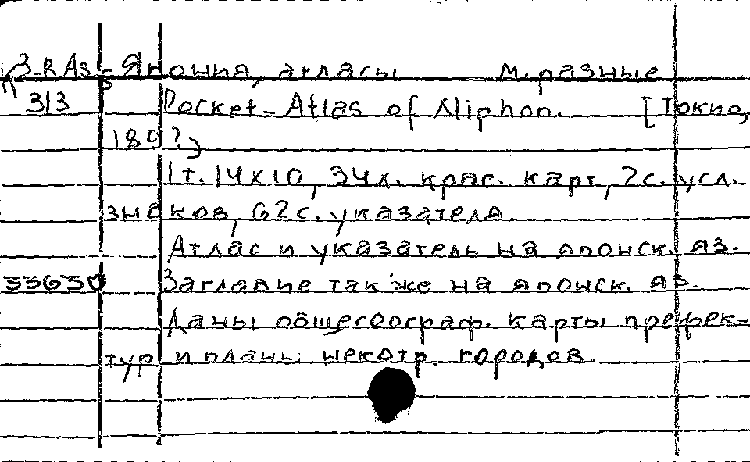 З-R As- Япония, атласы м. разные
313 Pocket-Atlas of Niphon. [Токио,
189?]
1т. 14х10, 34л. крас. карт, 2с. усл.
знаков, 62с. указателя.
Атлас и указатель на японск. яз.
33630 Заглавие также на японск. яз.
Даны общегеограф. карты префек-
тур и планы некотр. городов.